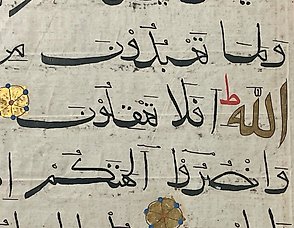 ولما تعبدون من
الله ط افلا تعقلون
وانصروا آلهتكم